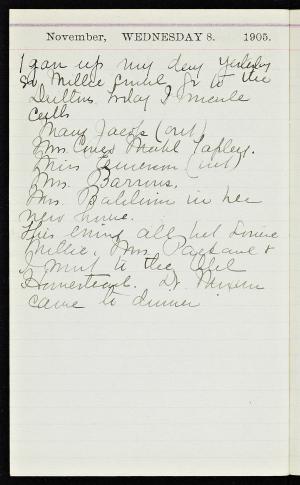 November, WEDNESDAY 8. 1905.
I gave up my day yesterday
so Millie could go to the
today I made
calls
Mary Jacobs (out)
Mrs Mabel Tapley.
Miss Emerson (out)
Mrs. Barrows.
Mrs. Baldwin in her
new home.
This evening all but
Millie, Mrs. &
I went to the Old
Homestead. Dr.
came to dinner